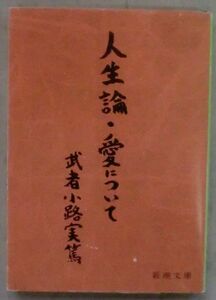 人生論・愛について
武者小路実篤
新潮文庫